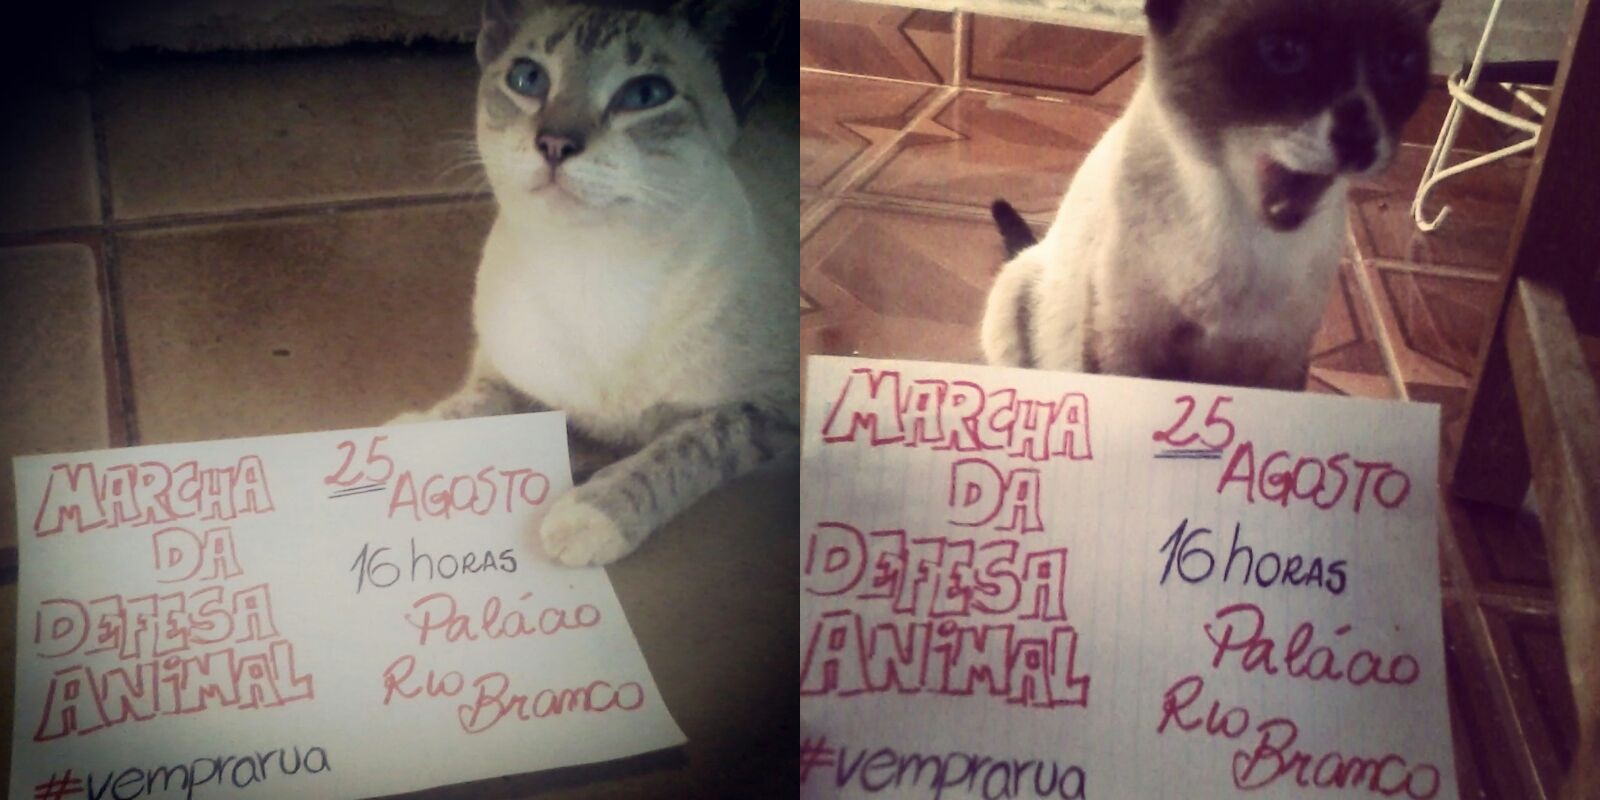 MARCHA
DA
DEFESA
ANiMAL
#vemprarua
25
AGOSTO
16 hORAS
Palácio
Rio
Branco
MARCHA
DA
DEFESA
ANiMAL
#vemprarua
25
AGOSTO
16 hORAS
Palácio
Rio
Branco